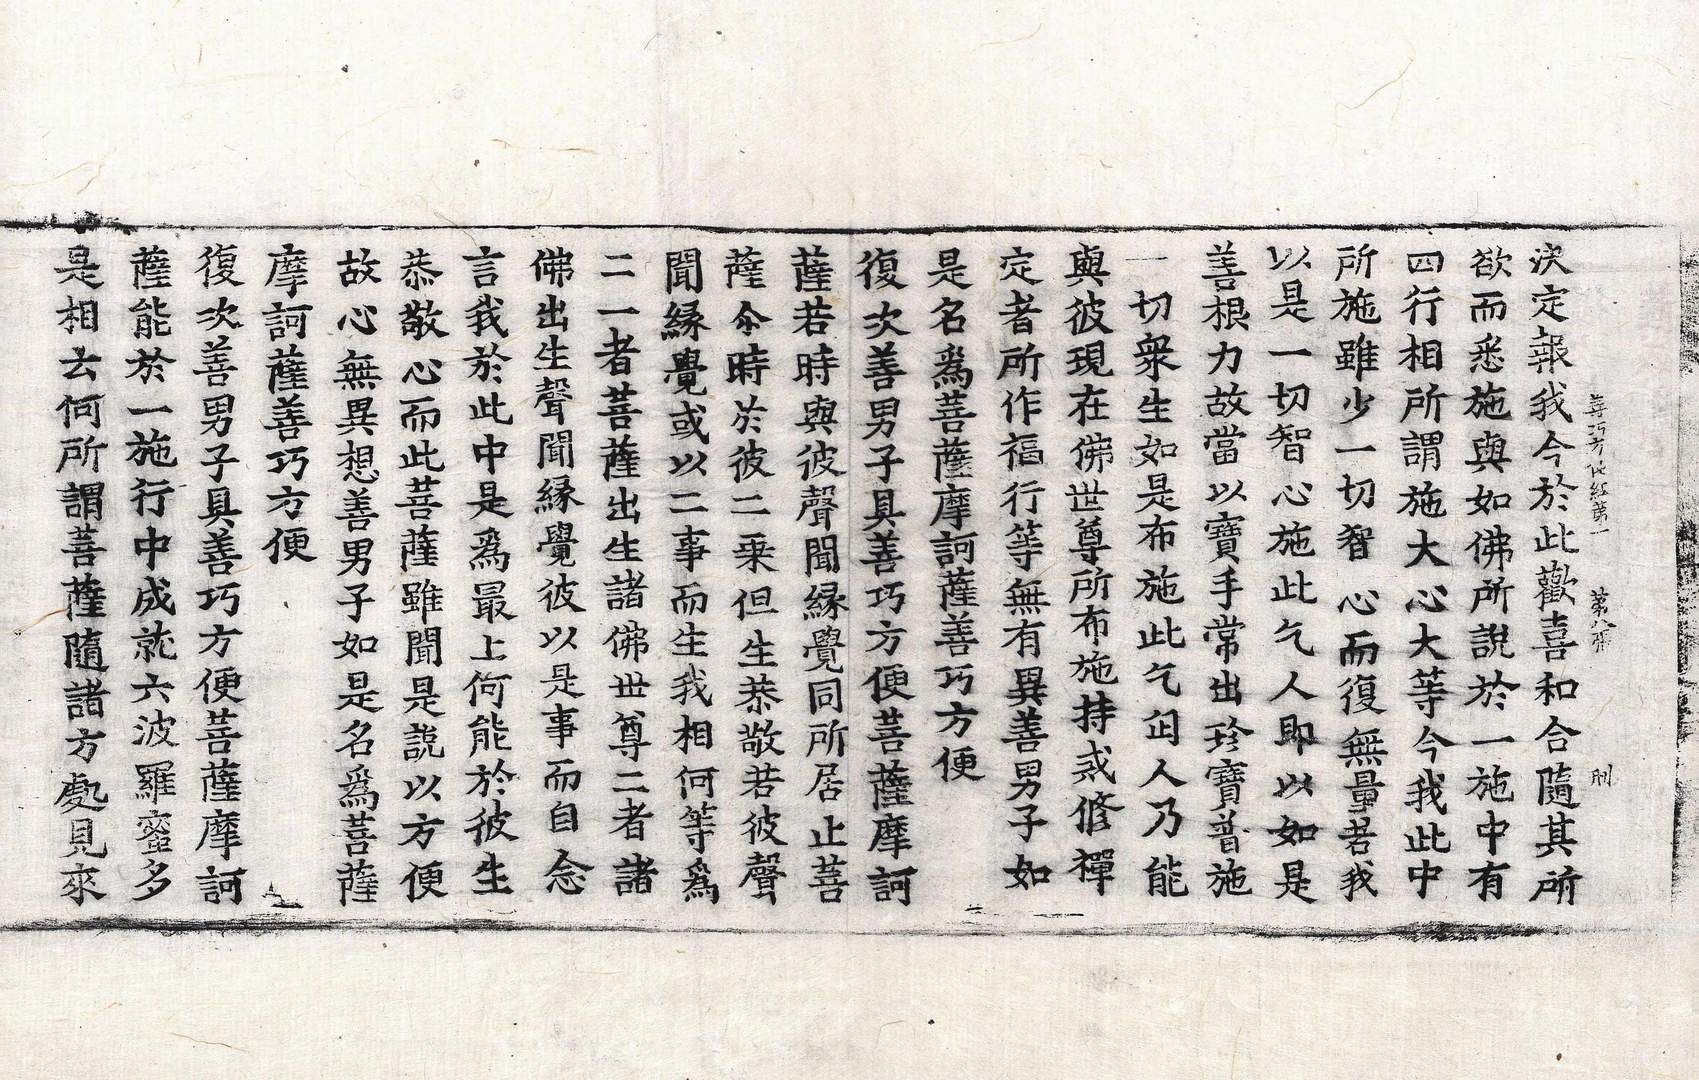 善巧方便經第一　第八張　刑
決定報我今於此歡喜和合隨其所
欲而悉施與如佛所說於一施中有
四行相所謂施大心大等今我此中
所施雖少一切智心而復無量若我
以是一切智心施此乞人即以如是
善根力故當以寶手常出珍寶普施
一切衆生如是布施此乞匃人乃能
與彼現在佛世尊所布施持戒修禪
定者所作福行等無有異善男子如
是名爲菩薩摩訶薩善巧方便
復次善男子具善巧方便菩薩摩訶
薩若時與彼聲聞緣覺同所居止菩
薩尒時於彼二乗但生恭敬若彼聲
聞緣覺或以二事而生我相何等爲
二一者菩薩出生諸佛世尊二者諸
佛出生聲聞緣覺彼以是事而自念
言我於此中是爲最上何能於彼生
恭敬心而此菩薩雖聞是說以方便
故心無異想善男子如是名爲菩薩
摩訶薩善巧方便
復次善男子具善巧方便菩薩摩訶
薩能於一施行中成就六波羅蜜多
是相云何所謂菩薩隨諸方處見來